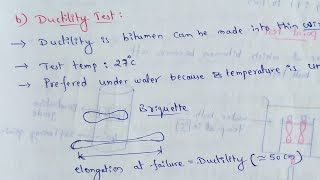 b) Ductility Test:
→ Ductility is bitumen can be made into thin wi
→ Test temp : 27°C
→ Prefered under water because temperature is un
Briquette
elongation at failure = Ductility (≈50cm)